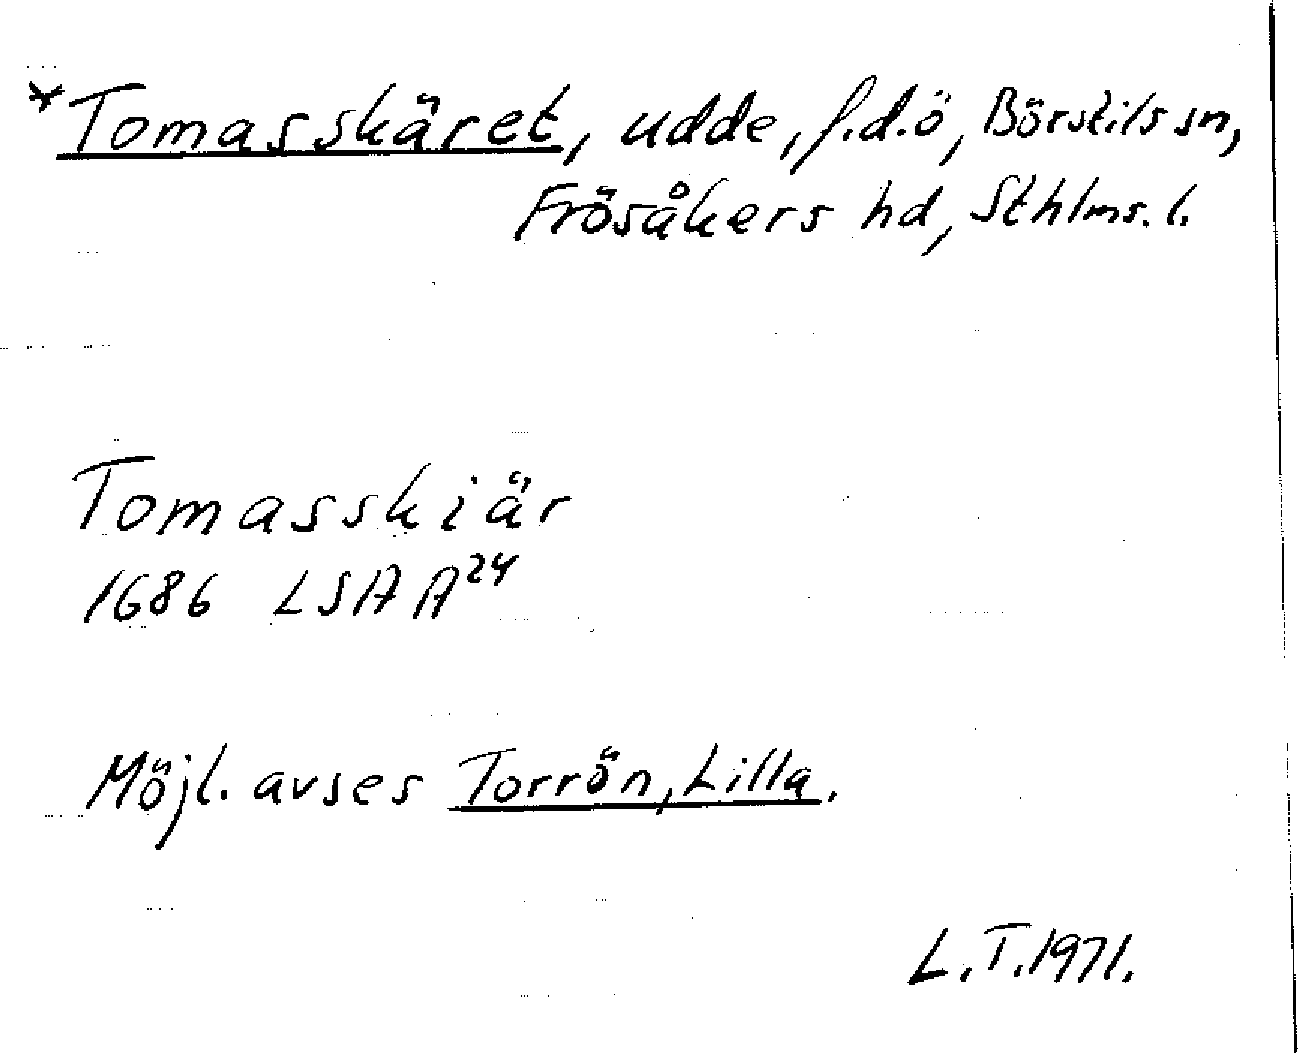 *Tomasskäret, udde, f.d.ö, Börstils sn,
Frösåkers hd, Sthlms. l.
Tomasskiär
1686 LSA A²⁴
Möjl. avses Torrön, Lilla.
L.T. 1971.